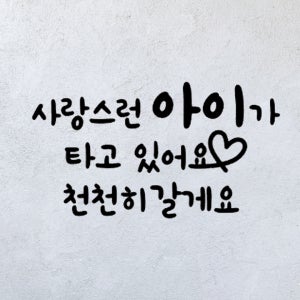 사랑스런 아이가
타고 있어요
천천히갈게요